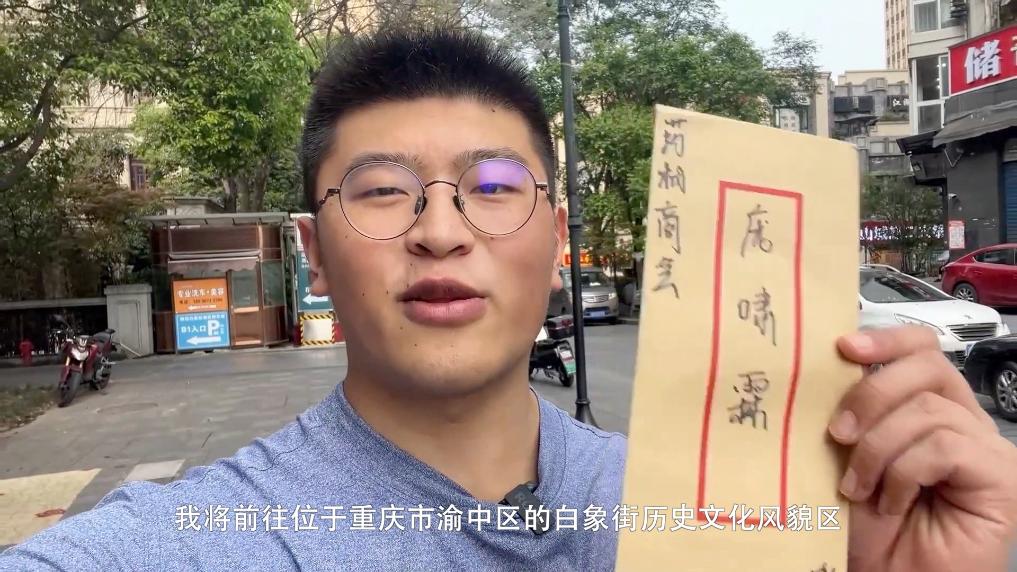 药材商会
庞啸霖
储
专业洗车·美容
B1入口 P
我将前往位于重庆市渝中区的白象街历史文化风貌区